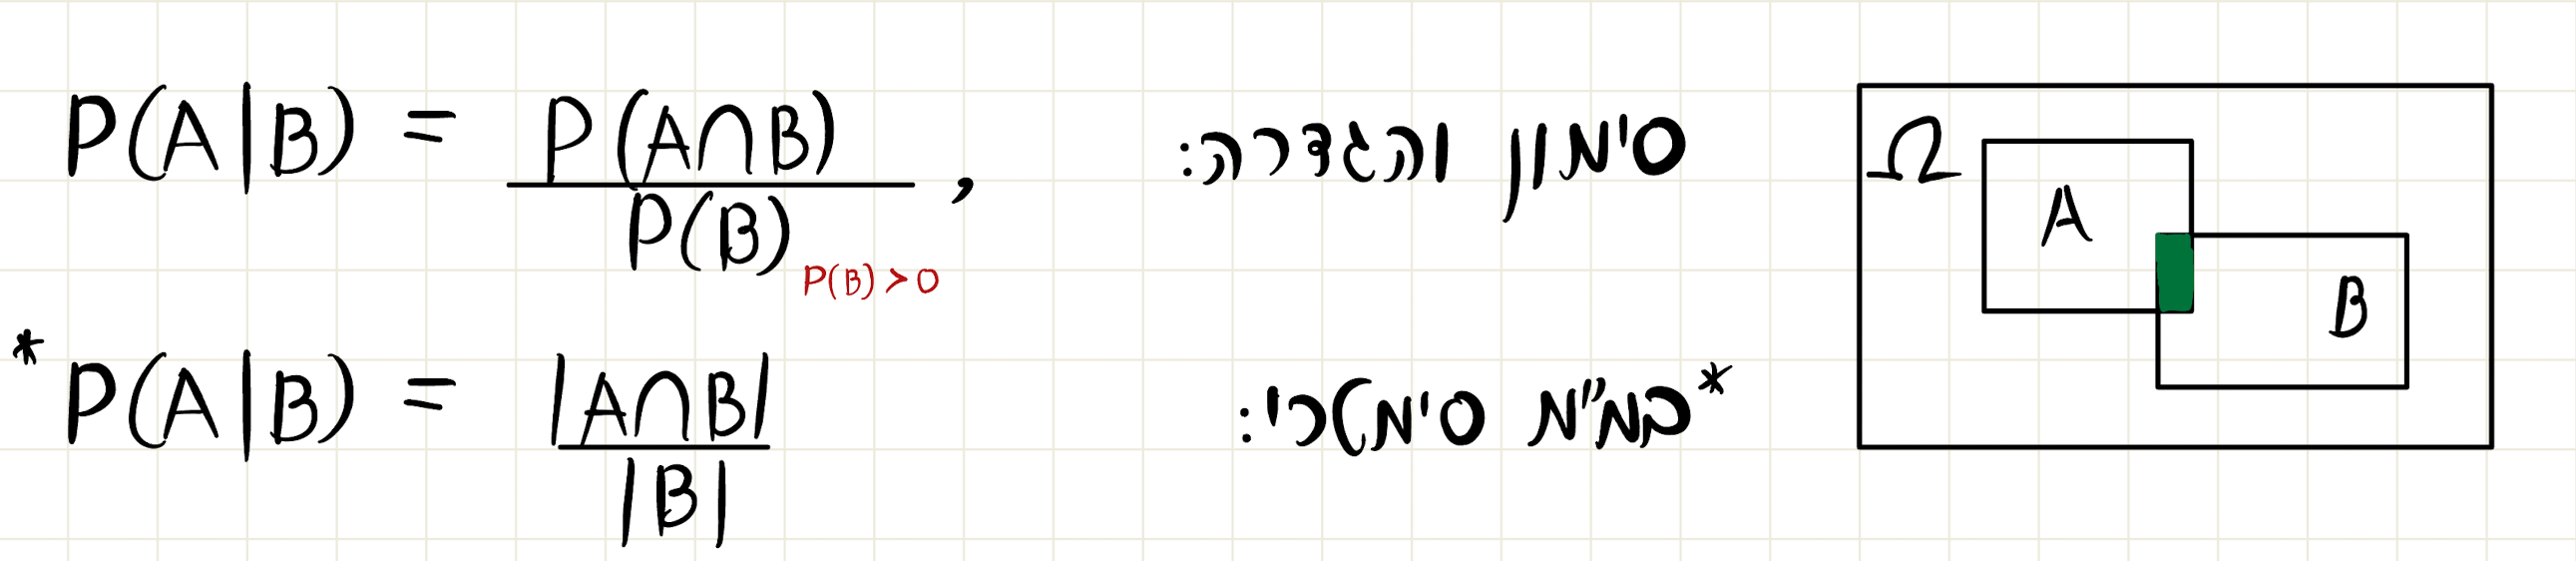 סימון והגדרה:
P(A|B) = P(A∩B) / P(B) , P(B)>0
*במ"מ סימטרי:
* P(A|B) = |A∩B| / |B|
Ω
A
B